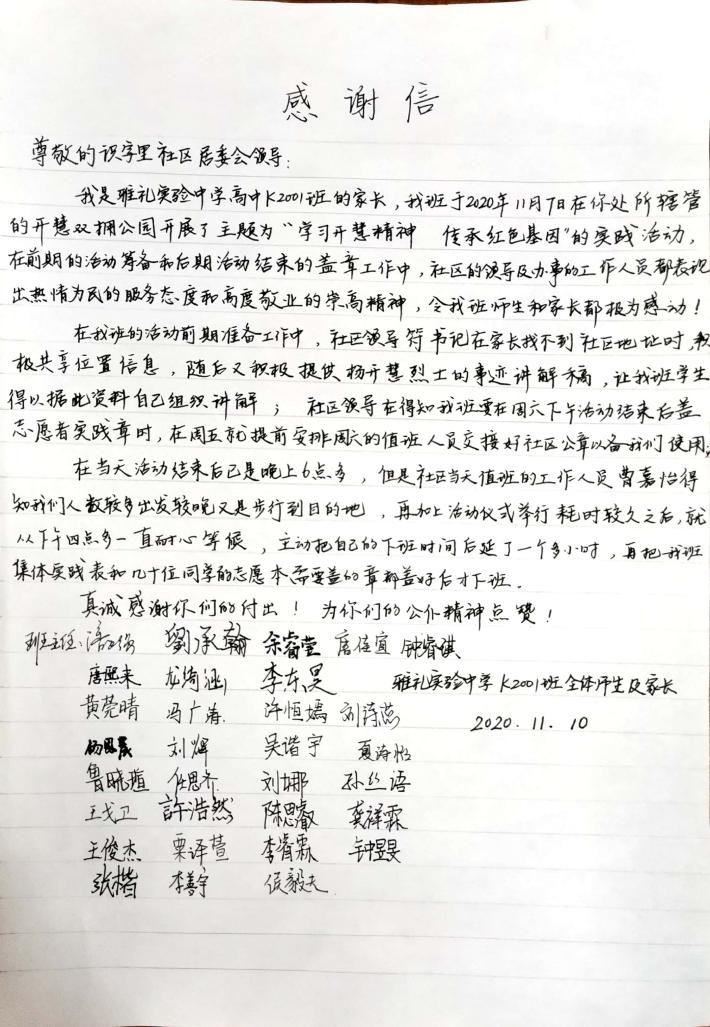 感谢信
尊敬的识字里社区居委会领导:
我是雅礼实验中学高中K2001班的家长,我班于2020年11月7日在你处所辖管
的开慧双拥公园开展了主题为“学习开慧精神 传承红色基因”的实践活动,
在前期的活动筹备和后期活动结束的盖章工作中,社区的领导及办事的工作人员都表现
出热情为民的服务态度和高度敬业的崇高精神,令我班师生和家长都极为感动!
在我班的活动前期准备工作中,社区领导符书记在家长找不到社区地址时,积
极共享位置信息,随后又积极提供杨开慧烈士的事迹讲解稿,让我班学生
得以据此资料自己组织讲解;社区领导在得知我班要在周六下午活动结束后盖
志愿者实践章时,在周五就提前安排周六的值班人员交接好社区公章以备我们使用;
在当天活动结束后已是晚上6点多,但是社区当天值班的工作人员曹嘉怡得
知我们人数较多出发较晚又是步行到目的地,再加上活动仪式举行耗时较久之后,就
从下午四点多一直耐心等候,主动把自己的下班时间后延了一个多小时,再把我班
集体实践表和几十位同学的志愿本需要盖的章都盖好后才下班.
真诚感谢你们的付出!为你们的公仆精神点赞!
班主任: 劉承翰 余睿莹 唐佳宜 钟睿琪
唐熙来 龙绮涵 李东昊 雅礼实验中学K2001班全体师生及家长
黄莞晴 冯广海 许恒嫣 刘诗蕊 2020.11.10
刘辉 吴谐宇 夏海怡
鲁晓楦 任思齐 刘娜 孙丝语
王戈卫 許浩然 陈思睿 龚祥霖
王俊杰 栗译萱 李睿霖 钟昱旻
张楷 李善宇 侯毅夫